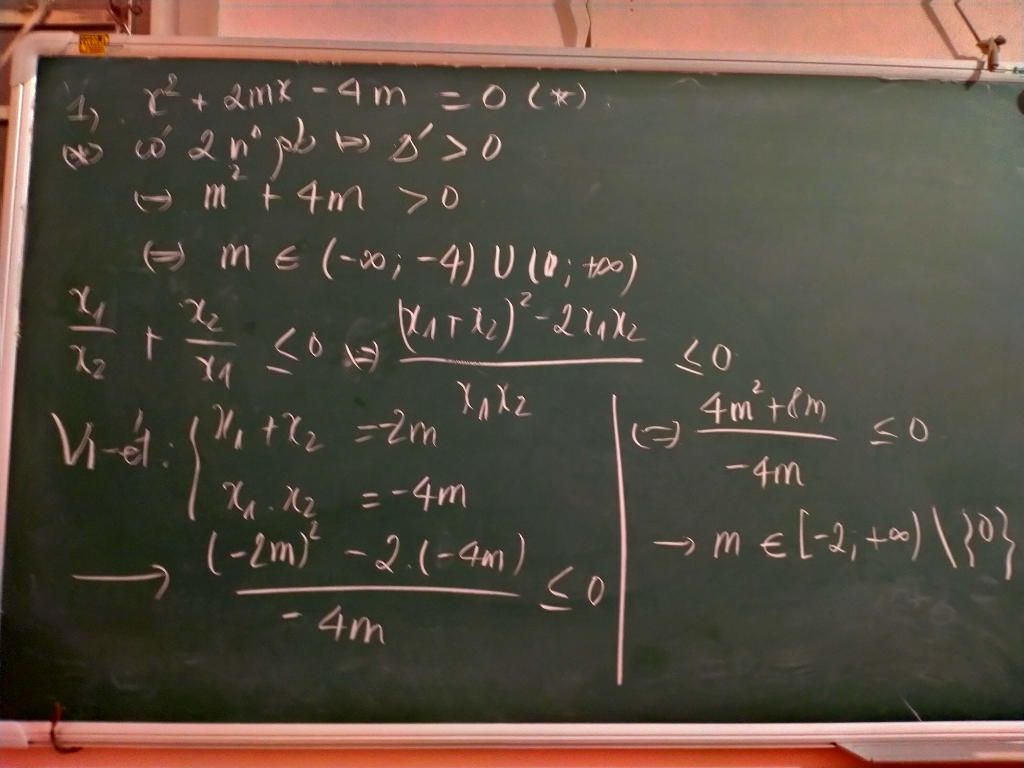 1, x² + 2mx - 4m = 0 (*)
(*) có 2 n⁰ pb ⇔ Δ' > 0
⇔ m² + 4m > 0
⇔ m ∈ (-∞; -4) ∪ (0; +∞)
x₁/x₂ + x₂/x₁ ≤ 0 ⇔ ((x₁ + x₂)² - 2x₁x₂)/(x₁x₂) ≤ 0
Vi-ét: { x₁ + x₂ = -2m
x₁ . x₂ = -4m
→ ((-2m)² - 2.(-4m))/(-4m) ≤ 0
⇔ (4m² + 8m)/(-4m) ≤ 0
→ m ∈ [-2; +∞) \ }0}